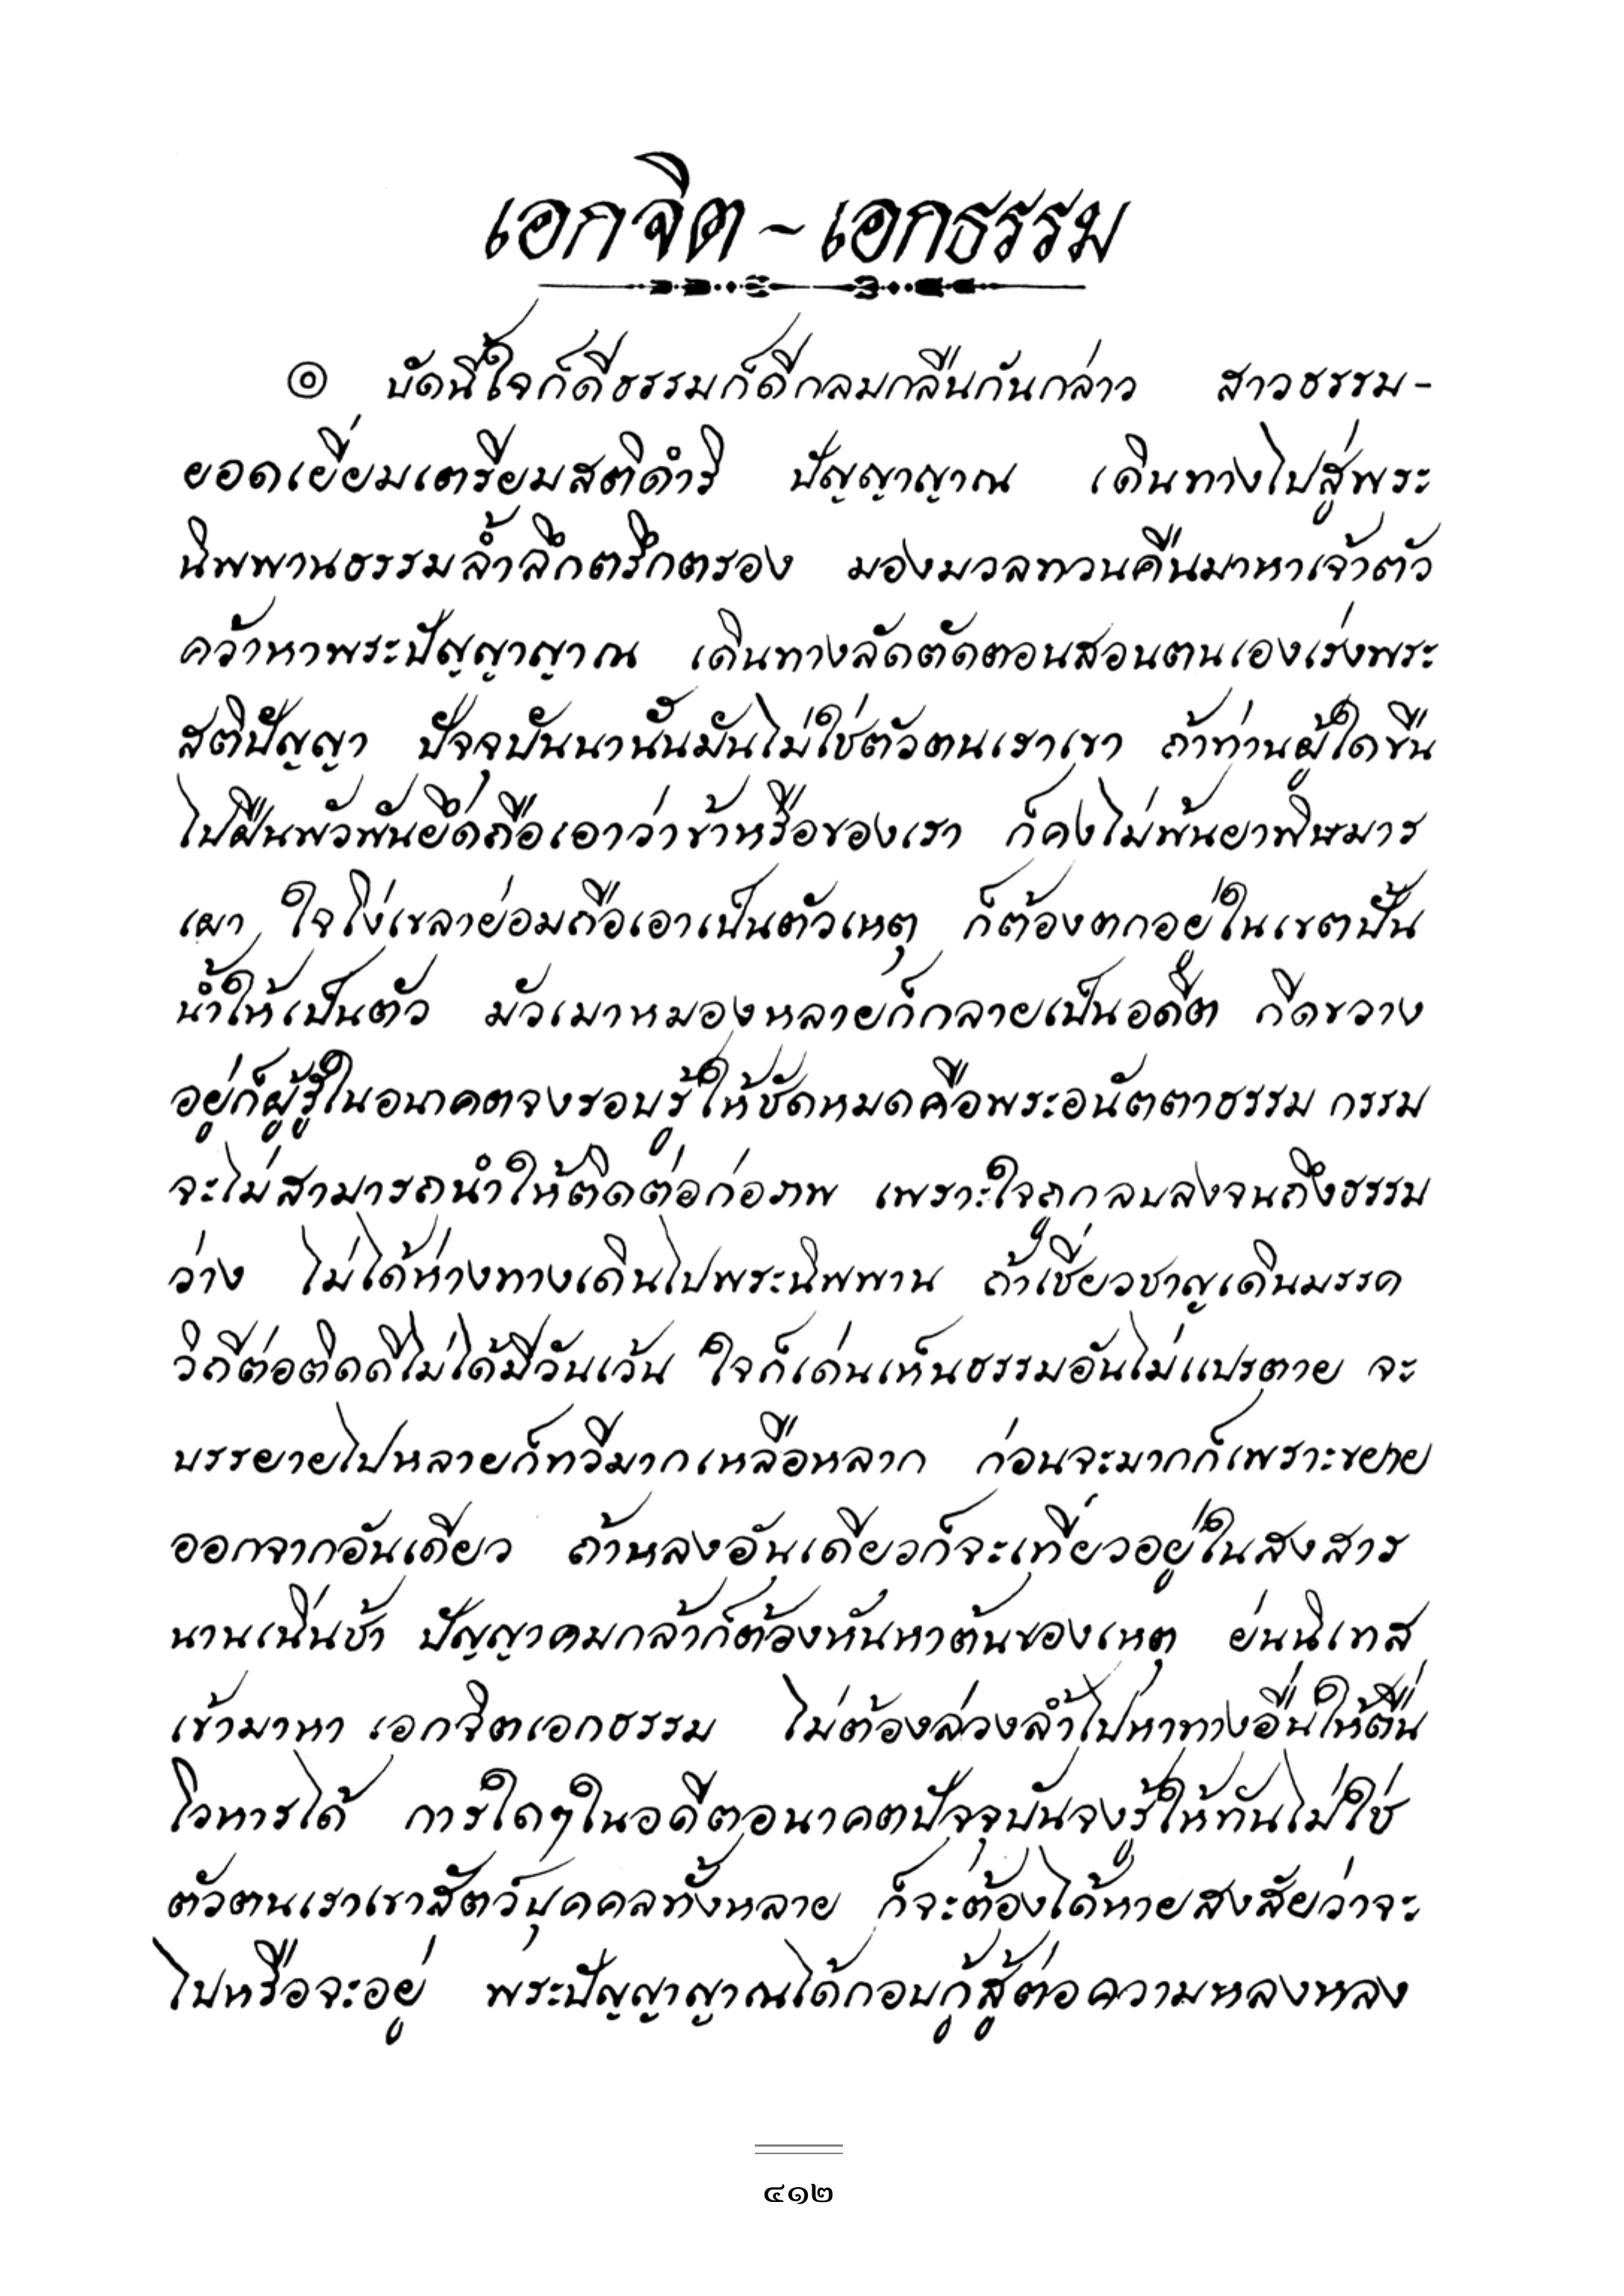 เอกจิต ~ เอกธรรม
๏ บัดนี้ใจก็ดีธรรมก็ดีกลมกลืนกันกล่าว สาวธรรม-
ยอดเยี่ยมเตรียมสติดำริ ปัญญาญาณ เดินทางไปสู่พระ
นิพพานธรรมล้ำลึกตรึกตรอง มองมวลทวนคืนมาหาเจ้าตัว
คว้าหาพระปัญญาญาณ เดินทางลัดตัดตอนสอนตนเองเร่งพระ
สติปัญญา ปัจจุบันนานั้นมันไม่ใช่ตัวตนเราเขา ถ้าท่านผู้ใดขืน
ไปฝืนพัวพันยึดถือเอาว่าข้าหรือของเรา ก็คงไม่พ้นยาพิษมาร
เผา ใจโง่เขลาย่อมถือเอาเป็นตัวเหตุ ก็ต้องตกอยู่ในเขตปั้น
น้ำให้เป็นตัว มัวเมาหมองหลายก็กลายเป็นอดีต กีดขวาง
อยู่ก็ผู้รู้ในอนาคตจงรอบรู้ให้ชัดหมดคือพระอนัตตาธรรม กรรม
จะไม่สามารถนำให้ติดต่อก่อภพ เพราะใจถูกลบลงจนถึงธรรม
ว่าง ไม่ได้ห่างทางเดินไปพระนิพพาน ถ้าเชี่ยวชาญเดินมรรค
วิถีต่อติดดีไม่ได้มีวันเว้น ใจก็เด่นเห็นธรรมอันไม่แปรตาย จะ
บรรยายไปหลายก็ทวีมากเหลือหลาก ก่อนจะมากก็เพราะขยาย
ออกจากอันเดียว ถ้าหลงอันเดียวก็จะเที่ยวอยู่ในสงสาร
นานเนิ่นช้า ปัญญาคมกล้าก็ต้องหันหาต้นของเหตุ ย่นนิเทส
เข้ามาหา เอกจิตเอกธรรม ไม่ต้องล่วงล้ำไปหาทางอื่นให้ตื่น
โวหารได้ การใดๆในอดีตอนาคตปัจจุบันจงรู้ให้ทันไม่ใช่
ตัวตนเราเขาสัตว์บุคคลทั้งหลาย ก็จะต้องได้หายสงสัยว่าจะ
ไปหรือจะอยู่ พระปัญญาญาณได้กอบกู้สู้ต่อความหลงหลง
๔๑๒